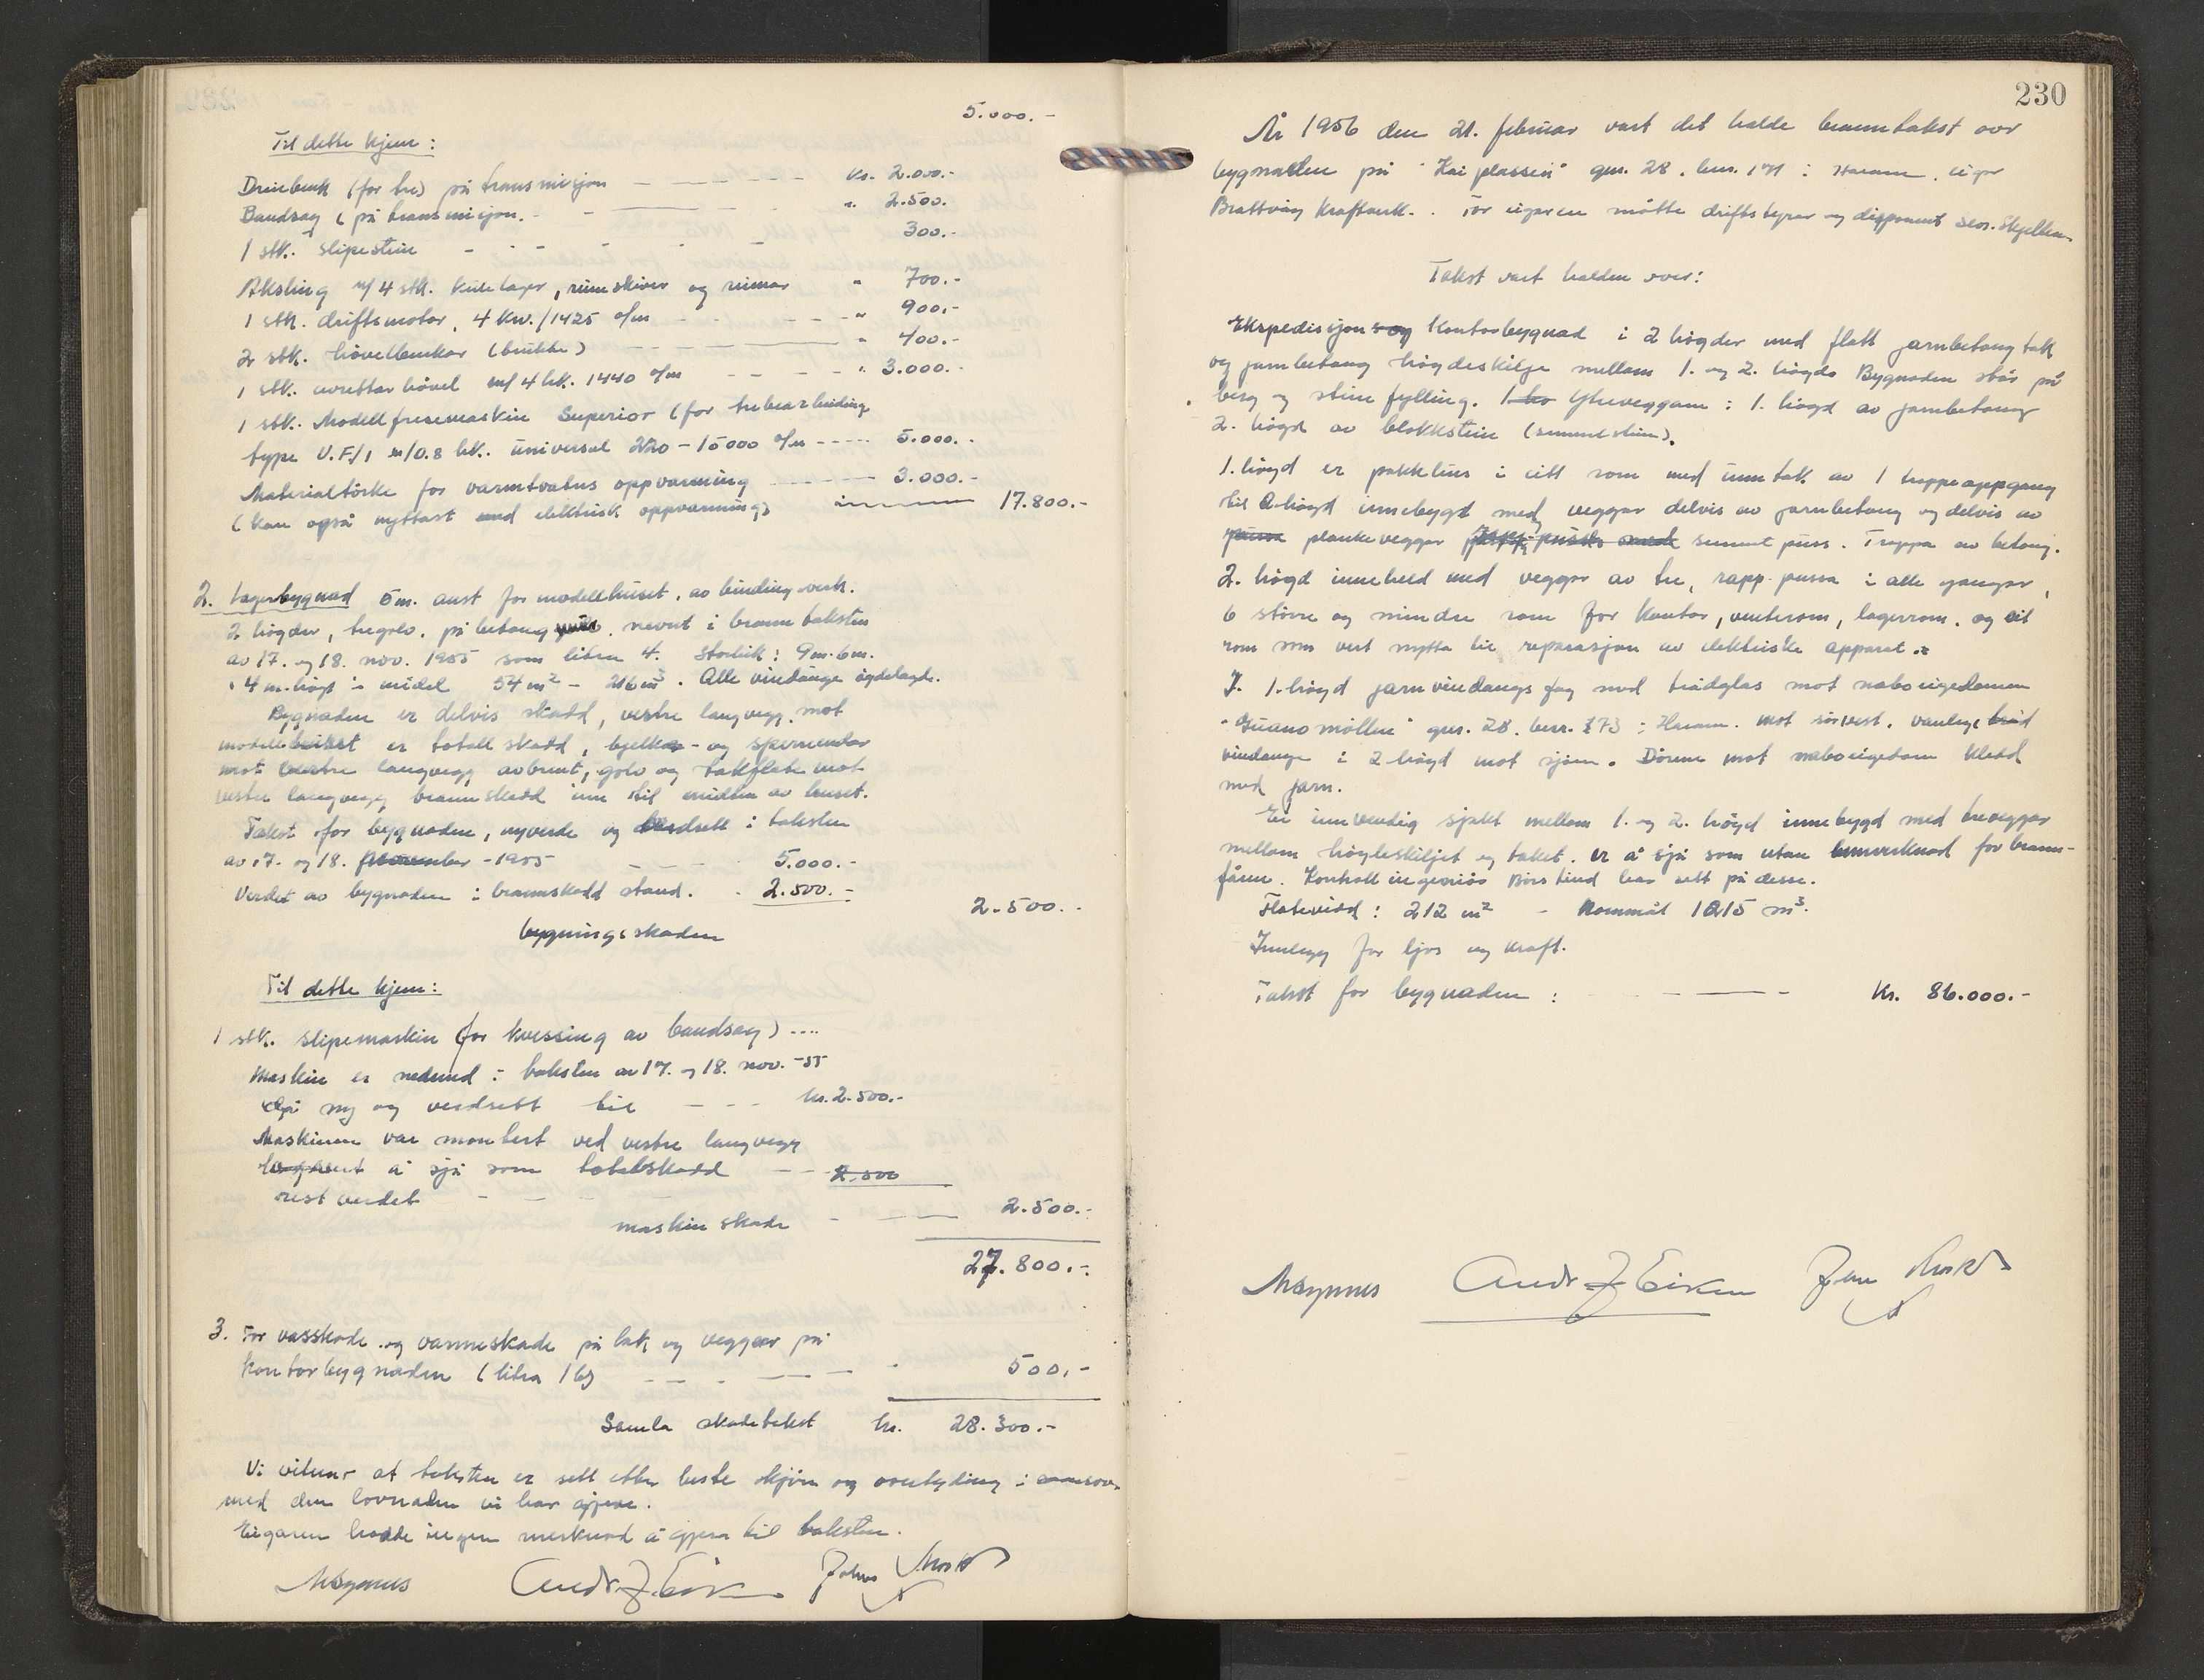 5.000.-
Til dette kjem:
Dreiebenk (for tre) på transmisjon — — — kr. 2.000.-
Bandsag (på transmisjon. - — " 2.500.
1 stk. slipestein - - - - - 300.-
Aksling m/4 stk. kulelager, reimskiver og reimar " 700.-
1 stk. driftsmotor, 4 kw./1425 o/m — — - " 900.-
2 stk. hövelbenkar (brukte) — — " 400.-
1 stk. avrettarhövel m/4 hk. 1440 o/m - — - - " 3.000.-
1 stk. Modellfresemaskin Superior (for trebearbeiding
type U.F./1 m/0.8 hk. universal - 15000 o/m ----- 5.000.-
Materialtörke for varmtvatns oppvarming ------ 3.000.-
(kan også nyttast med elektrisk oppvarming) ——— 17.800.-
2. Lagerbygnad 5m. aust for modellhuset, av bindingsverk.
2 högder, tregolv, på betong nevnt i branntaksten
av 17. og 18. nov. 1955 som litra 4. Storleik: 9m. 6m.
4 m. högt i midel 54 m² - 216 m³. Alle vindauge öydelagde.
Bygnaden er delvis skadd, vestre langvegg mot
modellhuset er totall skadd, bjelkar- og sperrendar
mot vestre langvegg avbrent, golv og takflate mot
vestre langvegg brannskadd inn til midten av huset.
Takst for bygnaden, nyverde og verdsett i taksten
av 17. og 18. november - 1955 — — — 5.000.-
Verdet av bygnaden i brannskadd stand. - 2.500.-
bygningsskaden 2.500.-
Til dette kjem:
1 stk. slipemaskin (for kvessing av bandsag) ....
Maskin er nedmd i taksten av 17. og 18. nov. -55
og verdsett til — - - kr. 2.500.-
Maskinen var montert ved vestre langvegg
å sjå som totalskadd — - 2.500
rest verdet - — - —
maskin skade - — — 2.500.-
27.800.-
3. For vasskade og varmeskade på tak og veggar på
kontorbygnaden (litra 16) — — - — — - 500.-
Samla skadetakst kr. 28.300.-
Vi vitnar at taksten er sett etter beste skjön og overtyding i samsvar
med den lovnaden vi har gjeve.
Eigaren hadde ingen merknad å gjera til taksten.
230
År 1956 den 21. februar vart det halde branntakst over
bygnaden på "Kaiplassen" gnr. 28. bnr. 171 i Haram. eigar
Brattvåg Kraftverk. For eigaren mötte driftstyrar og disponent
Takst vart halden over:
Ekspedisjons og Kontorbygnad i 2 högder med flatt jarnbetong tak
og jarnbetong högdeskilje mellam 1. og 2. högde Bygnaden står på
berg og stein fylling. Ytreveggane i 1. högd av jarnbetong
2. högd av blokkstein (sementstein).
1. högd er pakkhus i eitt rom med unntak av 1 trappeoppgang
til 2. högd innebygt med veggar delvis av jarnbetong og delvis av
pussa plankeveggar sement puss. Trappa av betong.
2. högd inneheld med veggar av tre, rapp-pussa i alle gangar,
6 större og mindre rom for kontor, venterom, lagerrom. og eit
rom som vert nytta til reparasjon av elektriske apparat.
I 1. högd jarnvindaugs fag med trådglas mot naboeigedomen
"Guanomöllen" gnr. 28. bnr. 173 i Haram. mot sörvest. vanlege
vindauge i 2 högd mot sjöen. Dörene mot naboeigedom kledd
med jarn.
Ei innvendig sjakt mellam 1. og 2. högd innebygd med treveggar
mellam högdeskiljet og taket. er å sjå som utan innverknad for brann-
fåren. Kontrollingeniör har sett på desse.
Flatevidd: 212 m² - Rommål 1215 m³.
Innlegg for ljos og kraft.
Takst for bygnaden : — — - Kr. 86.000.-